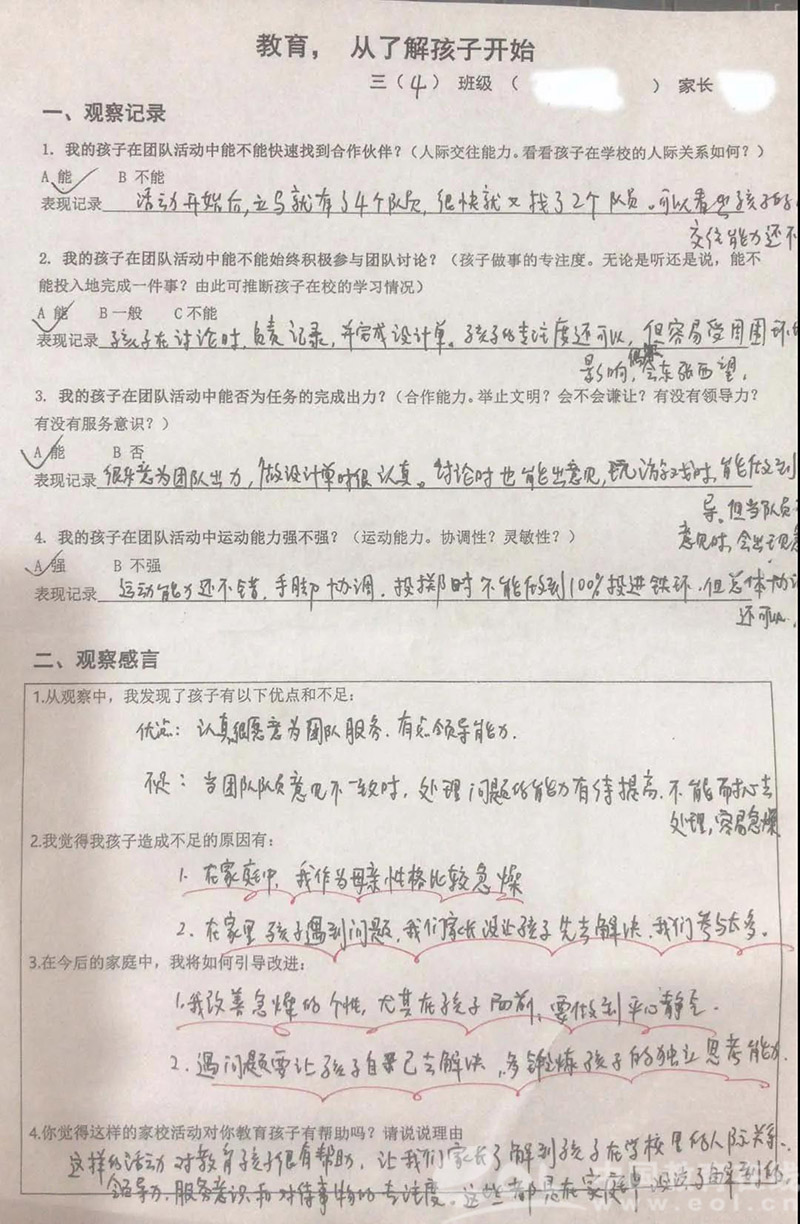 教育， 从了解孩子开始
三（4）班级（ ）家长
一、观察记录
1. 我的孩子在团队活动中能不能快速找到合作伙伴？（人际交往能力。看看孩子在学校的人际关系如何？）
A 能 B 不能
表现记录 活动开始后，立马就有了4个队员，很快就又找了2个队员。可以看出孩子的
交往能力还不
2. 我的孩子在团队活动中能不能始终积极参与团队讨论？（孩子做事的专注度。无论是听还是说，能不
能投入地完成一件事？由此可推断孩子在校的学习情况）
A 能 B 一般 C 不能
表现记录 孩子在讨论时，负责记录，并完成设计单。孩子的专注度还可以，但容易受周围环
影响，偶尔会东张西望。
3. 我的孩子在团队活动中能否为任务的完成出力？（合作能力。举止文明？会不会谦让？有没有领导力？
有没有服务意识？）
A 能 B 否
表现记录 很乐意为团队出力，做设计单时很认真。讨论时也能出意见，玩游戏时，能做到
导。但当队员
意见时，会出现
4. 我的孩子在团队活动中运动能力强不强？（运动能力。协调性？灵敏性？）
A 强 B 不强
表现记录 运动能力还不错，手脚协调。投掷时不能做到100%投进铁环，但总体协
还可以。
二、观察感言
1.从观察中，我发现了孩子有以下优点和不足：
优点：认真很愿意为团队服务。有点领导能力。
不足：当团队队员意见不一致时，处理问题的能力有待提高，不能耐心去
处理，容易急燥
2.我觉得我孩子造成不足的原因有：
1. 在家庭中，我作为母亲性格比较急燥
2. 在家里孩子遇到问题，我们家长没让孩子先去解决，我们参与太多。
3.在今后的家庭中，我将如何引导改进：
1.我改善急燥的个性，尤其在孩子面前，要做到平心静气。
2. 遇问题要让孩子自己去解决，多锻炼孩子的独立思考能力。
4.你觉得这样的家校活动对你教育孩子有帮助吗？请说说理由
这样的活动对教育孩子很有帮助，让我们家长了解到孩子在学校里的人际关系、
领导力、服务意识和对待事物的专注度，这些都是在家庭中没法了解到的，
www.eol.cn